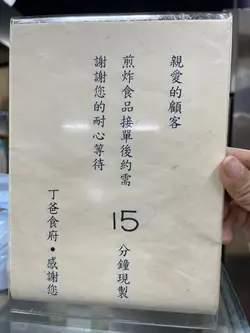 親愛的顧客
煎炸食品接單後約需15分鐘現製
謝謝您的耐心等待
丁爸食府•感謝您